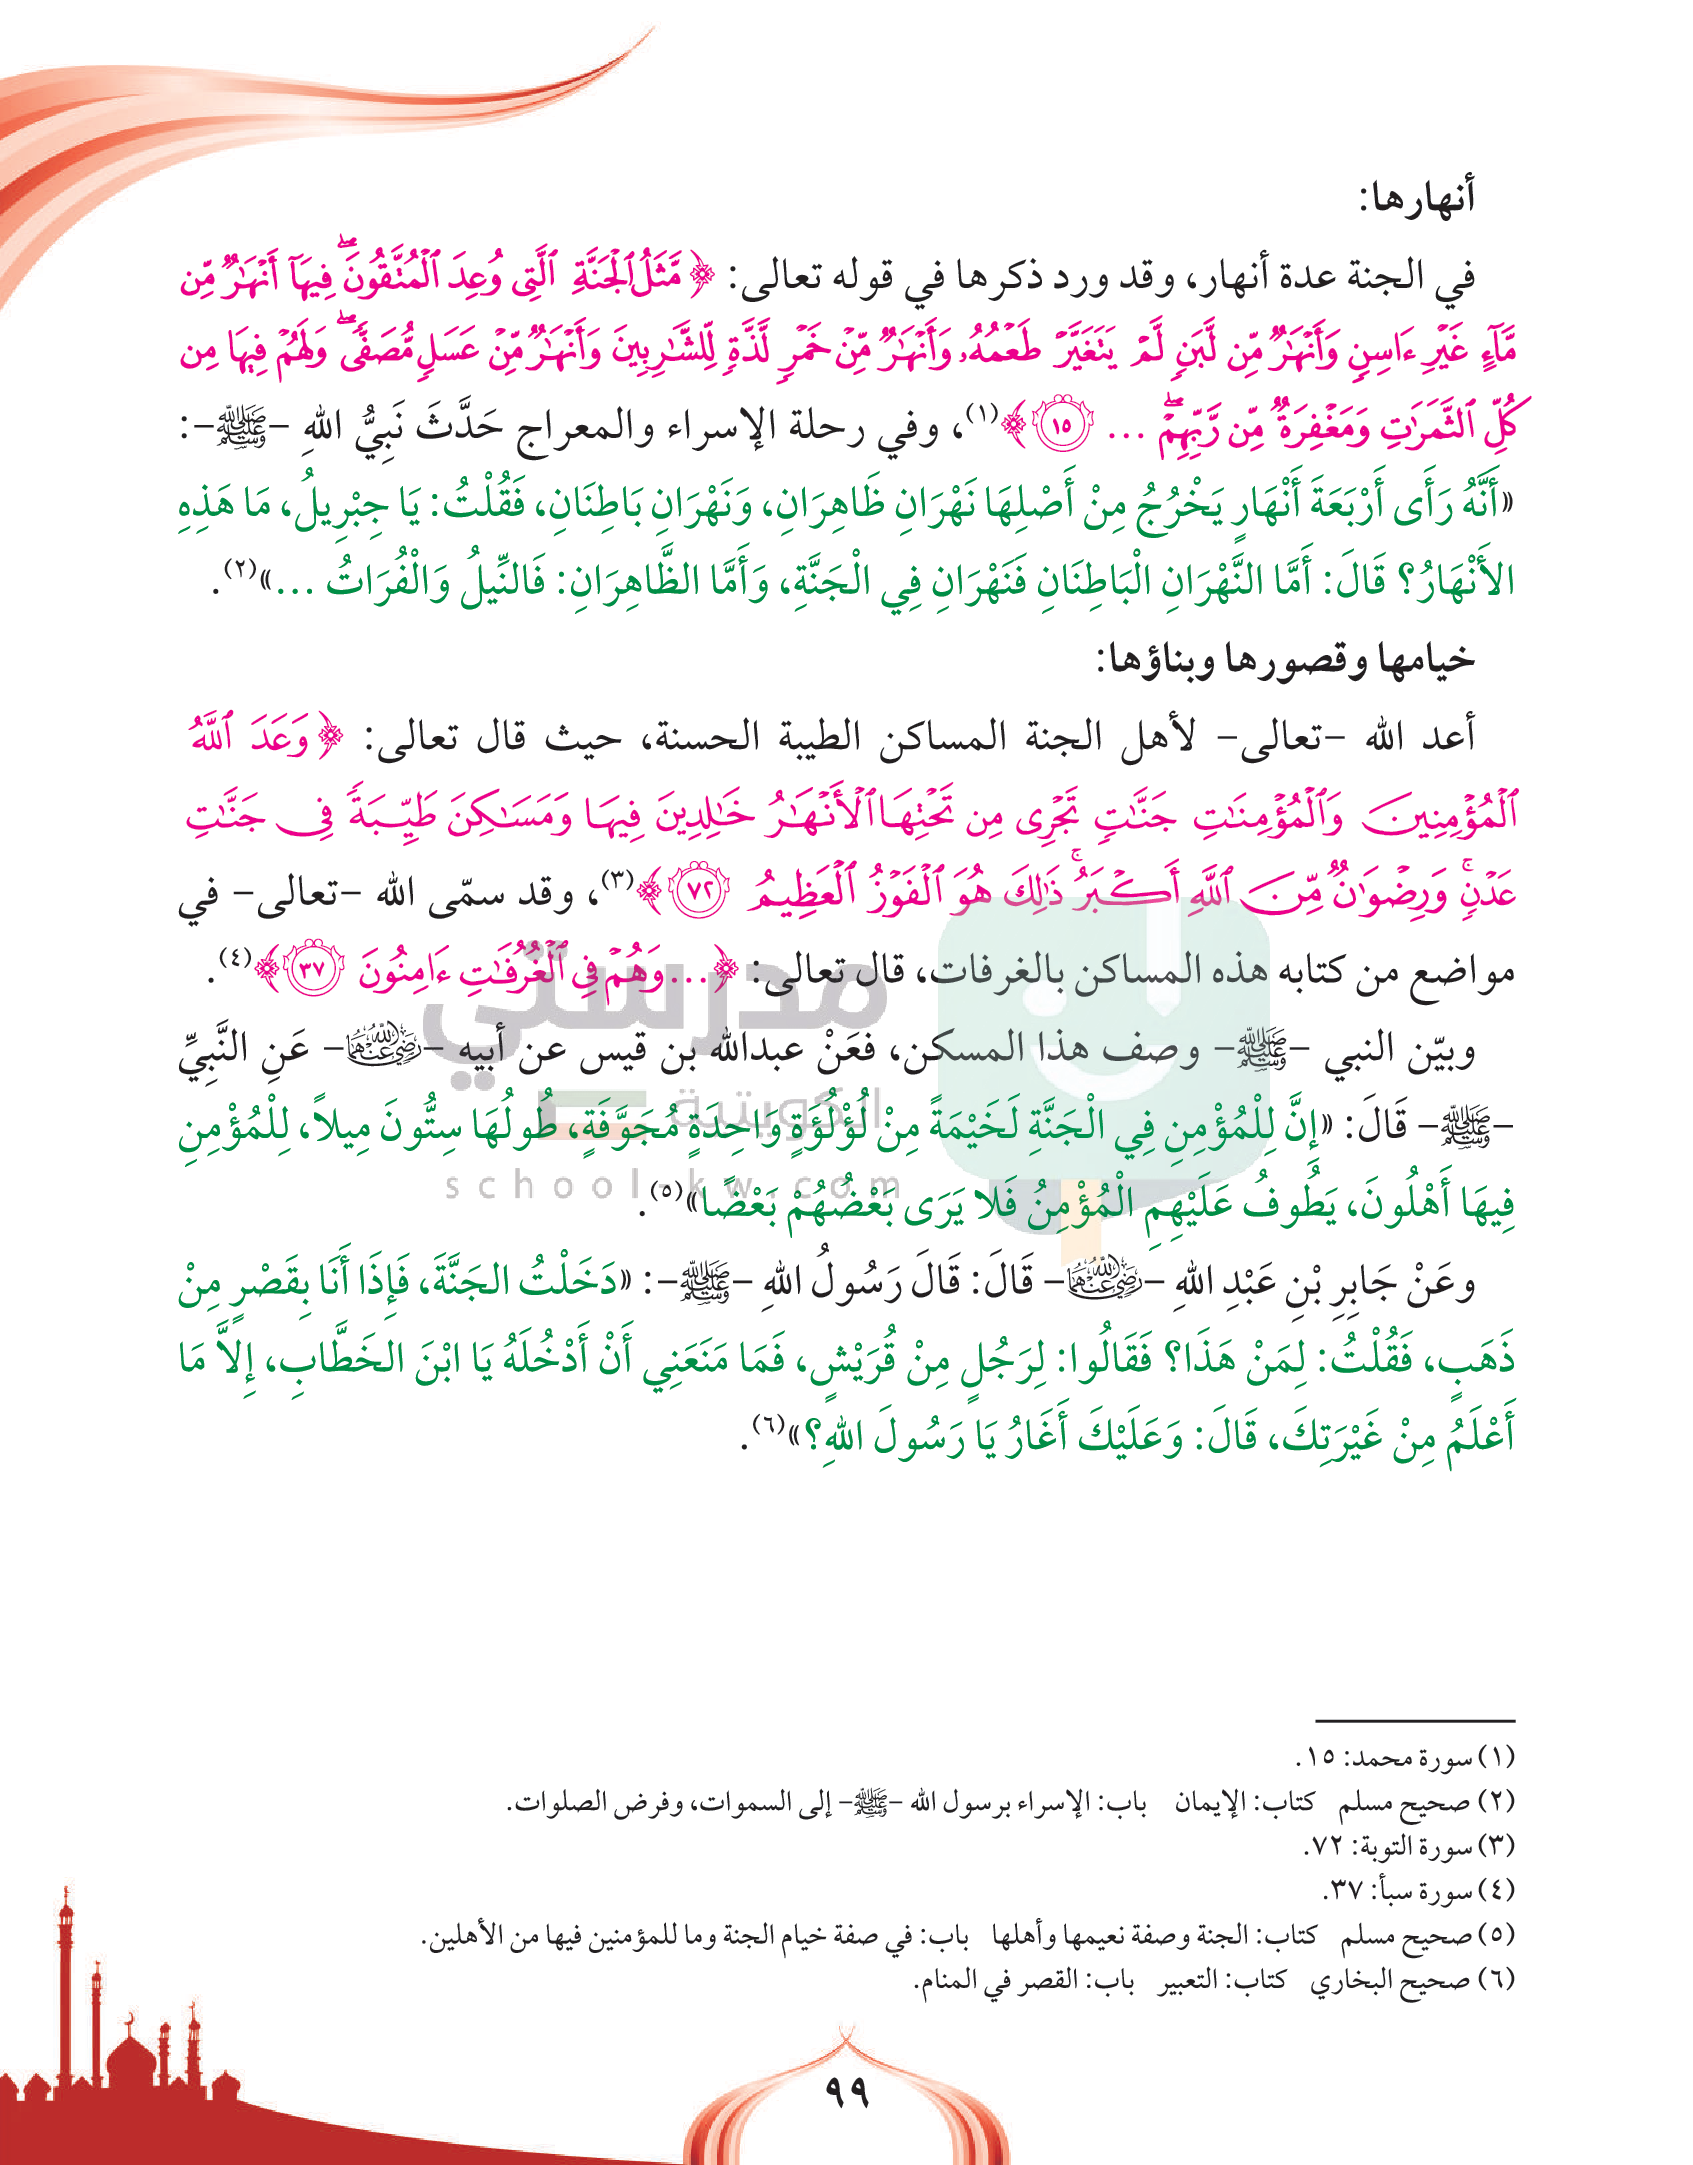 أنهارها:
في الجنة عدة أنهار، وقد ورد ذكرها في قوله تعالى: ﴿مَّثَلُ ٱلْجَنَّةِ ٱلَّتِى وُعِدَ ٱلْمُتَّقُونَ ۖ فِيهَآ أَنْهَٰرٌ مِّن
مَّآءٍ غَيْرِ ءَاسِنٍ وَأَنْهَٰرٌ مِّن لَّبَنٍ لَّمْ يَتَغَيَّرْ طَعْمُهُۥ وَأَنْهَٰرٌ مِّنْ خَمْرٍ لَّذَّةٍ لِّلشَّٰرِبِينَ وَأَنْهَٰرٌ مِّنْ عَسَلٍ مُّصَفًّى ۖ وَلَهُمْ فِيهَا مِن
كُلِّ ٱلثَّمَرَٰتِ وَمَغْفِرَةٌ مِّن رَّبِّهِمْ ۖ ... ١٥﴾(١)، وفي رحلة الإسراء والمعراج حَدَّثَ نَبِيُّ اللهِ -ﷺ-:
«أَنَّهُ رَأَى أَرْبَعَةَ أَنْهَارٍ يَخْرُجُ مِنْ أَصْلِهَا نَهْرَانِ ظَاهِرَانِ، وَنَهْرَانِ بَاطِنَانِ، فَقُلْتُ: يَا جِبْرِيلُ، مَا هَذِهِ
الأَنْهَارُ؟ قَالَ: أَمَّا النَّهْرَانِ الْبَاطِنَانِ فَنَهْرَانِ فِي الْجَنَّةِ، وَأَمَّا الظَّاهِرَانِ: فَالنِّيلُ وَالْفُرَاتُ ...»(٢).
خيامها وقصورها وبناؤها:
أعد الله -تعالى- لأهل الجنة المساكن الطيبة الحسنة، حيث قال تعالى: ﴿وَعَدَ ٱللَّهُ
ٱلْمُؤْمِنِينَ وَٱلْمُؤْمِنَٰتِ جَنَّٰتٍ تَجْرِى مِن تَحْتِهَا ٱلْأَنْهَٰرُ خَٰلِدِينَ فِيهَا وَمَسَٰكِنَ طَيِّبَةً فِى جَنَّٰتِ
عَدْنٍ ۚ وَرِضْوَٰنٌ مِّنَ ٱللَّهِ أَكْبَرُ ۚ ذَٰلِكَ هُوَ ٱلْفَوْزُ ٱلْعَظِيمُ ٧٢﴾(٣)، وقد سمّى الله -تعالى- في
مواضع من كتابه هذه المساكن بالغرفات، قال تعالى: ﴿...وَهُمْ فِى ٱلْغُرُفَٰتِ ءَامِنُونَ ٣٧﴾(٤).
وبيّن النبي -ﷺ- وصف هذا المسكن، فعَنْ عبدالله بن قيس عن أبيه -رضي الله عنهما- عَنِ النَّبِيِّ
-ﷺ- قَالَ: «إِنَّ لِلْمُؤْمِنِ فِي الْجَنَّةِ لَخَيْمَةً مِنْ لُؤْلُؤَةٍ وَاحِدَةٍ مُجَوَّفَةٍ، طُولُهَا سِتُّونَ مِيلاً، لِلْمُؤْمِنِ
فِيهَا أَهْلُونَ، يَطُوفُ عَلَيْهِمِ الْمُؤْمِنُ فَلا يَرَى بَعْضُهُمْ بَعْضًا»(٥).
وعَنْ جَابِرِ بْنِ عَبْدِ اللهِ -رضي الله عنهما- قَالَ: قَالَ رَسُولُ اللهِ -ﷺ-: «دَخَلْتُ الجَنَّةَ، فَإِذَا أَنَا بِقَصْرٍ مِنْ
ذَهَبٍ، فَقُلْتُ: لِمَنْ هَذَا؟ فَقَالُوا: لِرَجُلٍ مِنْ قُرَيْشٍ، فَمَا مَنَعَنِي أَنْ أَدْخُلَهُ يَا ابْنَ الخَطَّابِ، إِلاَّ مَا
أَعْلَمُ مِنْ غَيْرَتِكَ، قَالَ: وَعَلَيْكَ أَغَارُ يَا رَسُولَ اللهِ؟»(٦).
مدرستي
الكويتية
school-kw.com
(١) سورة محمد: ١٥.
(٢) صحيح مسلم كتاب: الإيمان باب: الإسراء برسول الله -ﷺ- إلى السموات، وفرض الصلوات.
(٣) سورة التوبة: ٧٢.
(٤) سورة سبأ: ٣٧.
(٥) صحيح مسلم كتاب: الجنة وصفة نعيمها وأهلها باب: في صفة خيام الجنة وما للمؤمنين فيها من الأهلين.
(٦) صحيح البخاري كتاب: التعبير باب: القصر في المنام.
٩٩